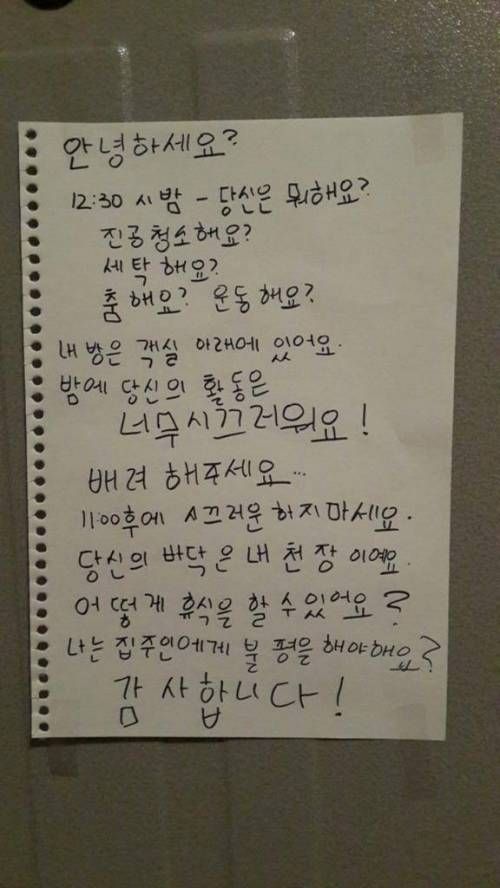 안녕하세요?
12:30 시 밤 - 당신은 뭐해요?
진공청소해요?
세탁해요?
춤해요? 운동해요?
내 방은 객실 아래에 있어요.
밤에 당신의 활동은
너무시끄러워요!
배려 해주세요...
11:00후에 시끄러운 하지마세요.
당신의 바닥은 내 천장이예요.
어떻게 휴식을 할 수 있어요?
나는 집주인에게 불평을 해야해요?
감사합니다!